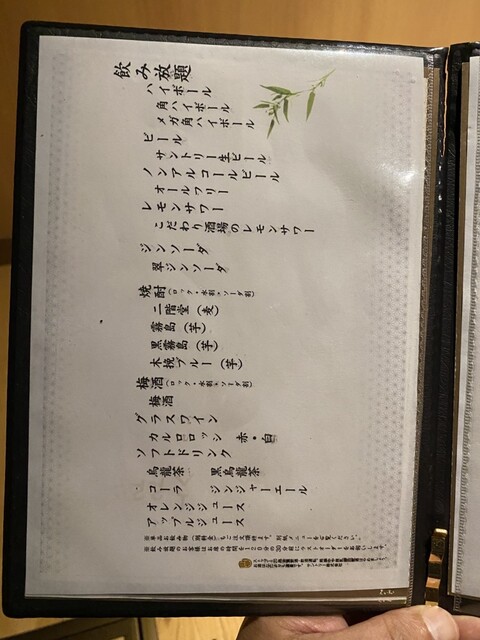 飲み放題
ハイボール
角ハイボール
メガ角ハイボール
ビール
サントリー生ビール
ノンアルコールビール
オールフリー
レモンサワー
こだわり酒場のレモンサワー
ジンソーダ
翠ジンソーダ
焼酎（ロック・水割・ソーダ割）
二階堂（麦）
霧島（芋）
黒霧島（芋）
木挽ブルー（芋）
梅酒（ロック・水割・ソーダ割）
梅酒
グラスワイン
カルロロッシ 赤・白
ソフトドリンク
烏龍茶 黒烏龍茶
コーラ ジンジャーエール
オレンジジュース
アップルジュース